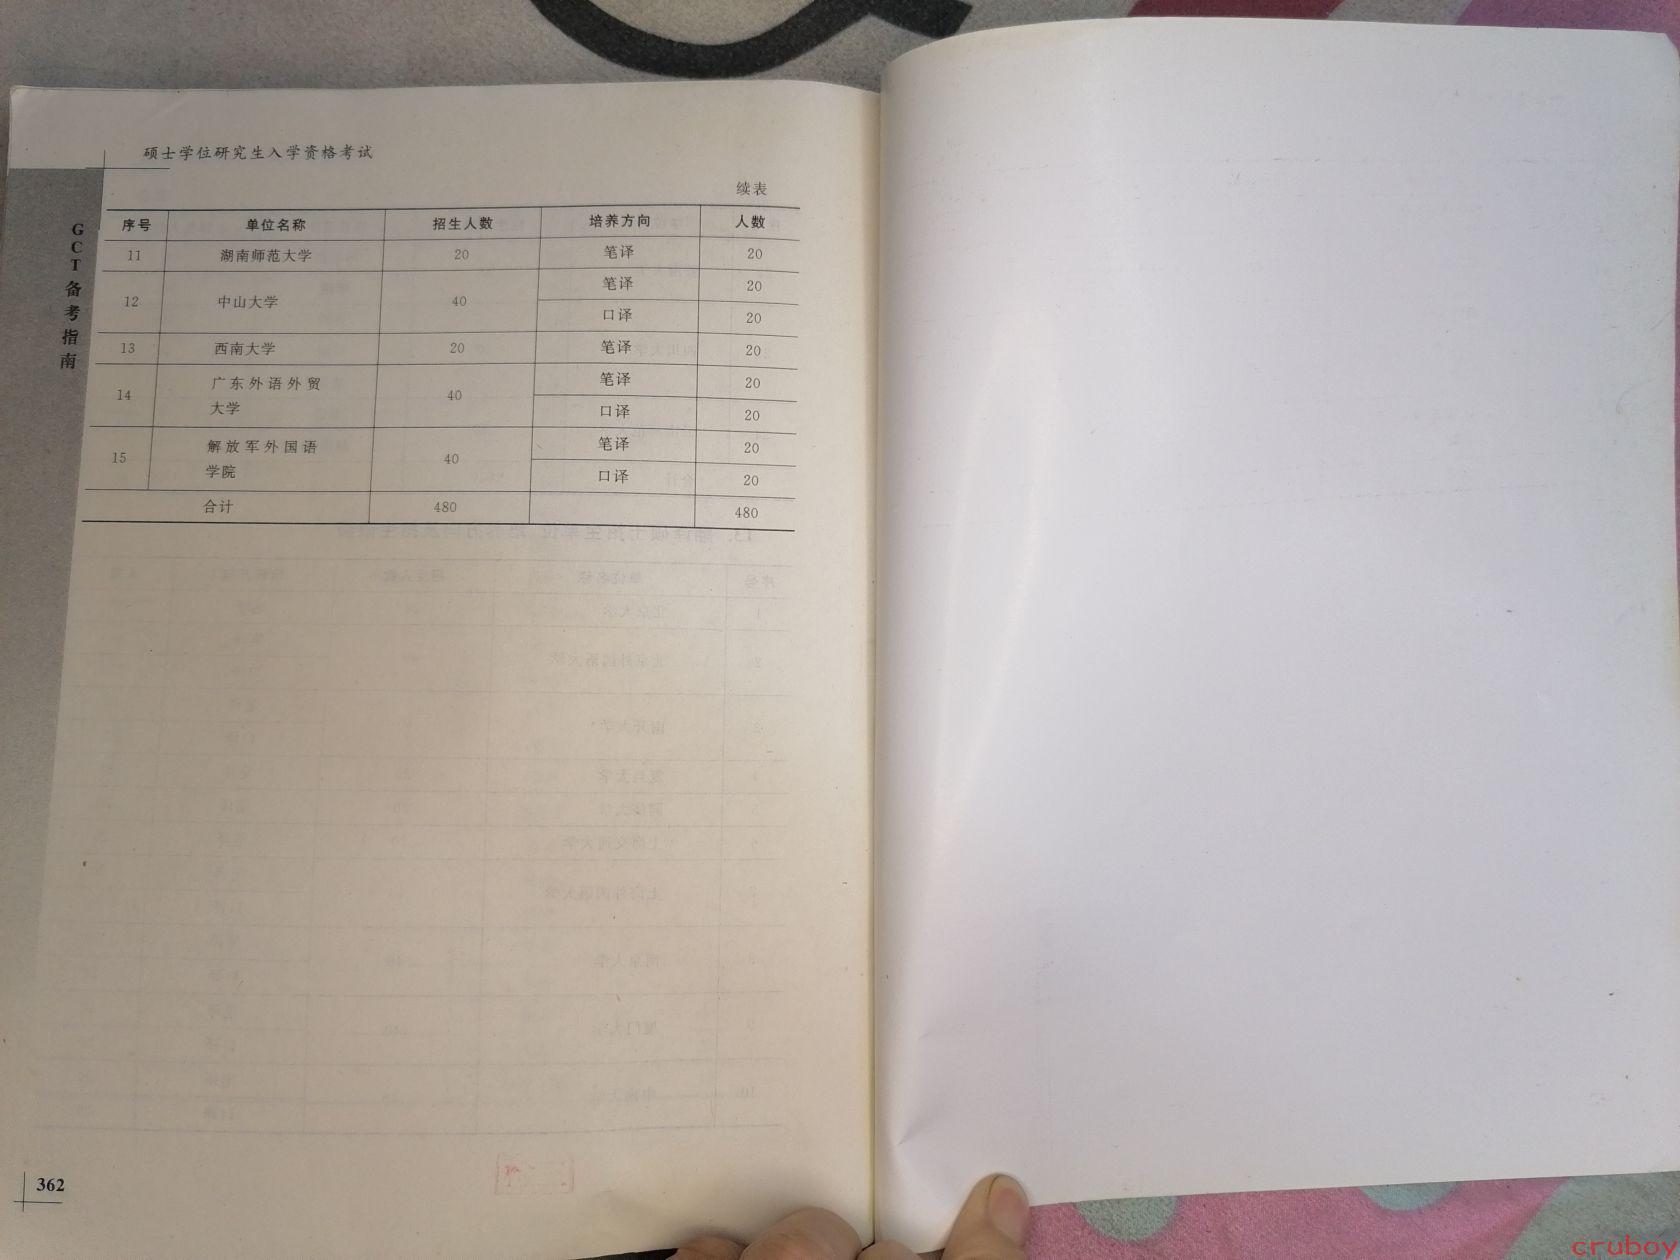 硕士学位研究生入学资格考试
GCT备考指南
续表
序号 单位名称 招生人数 培养方向 人数
11 湖南师范大学 20 笔译 20
12 中山大学 40 笔译 20
口译 20
13 西南大学 20 笔译 20
14 广东外语外贸 40 笔译 20
大学 口译 20
15 解放军外国语 40 笔译 20
学院 口译 20
合计 480 480
362
cruboy